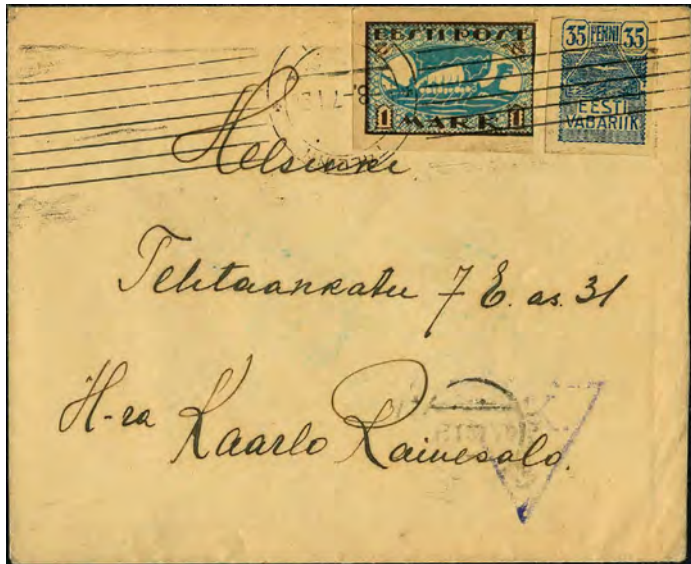 EESTI POST
1 MARK 1
35 PENNI 35
EESTI
VABARIIK
Helsinki
Tehtaankatu 7 E. as. 31
H-ra Kaarlo Rainesalo.